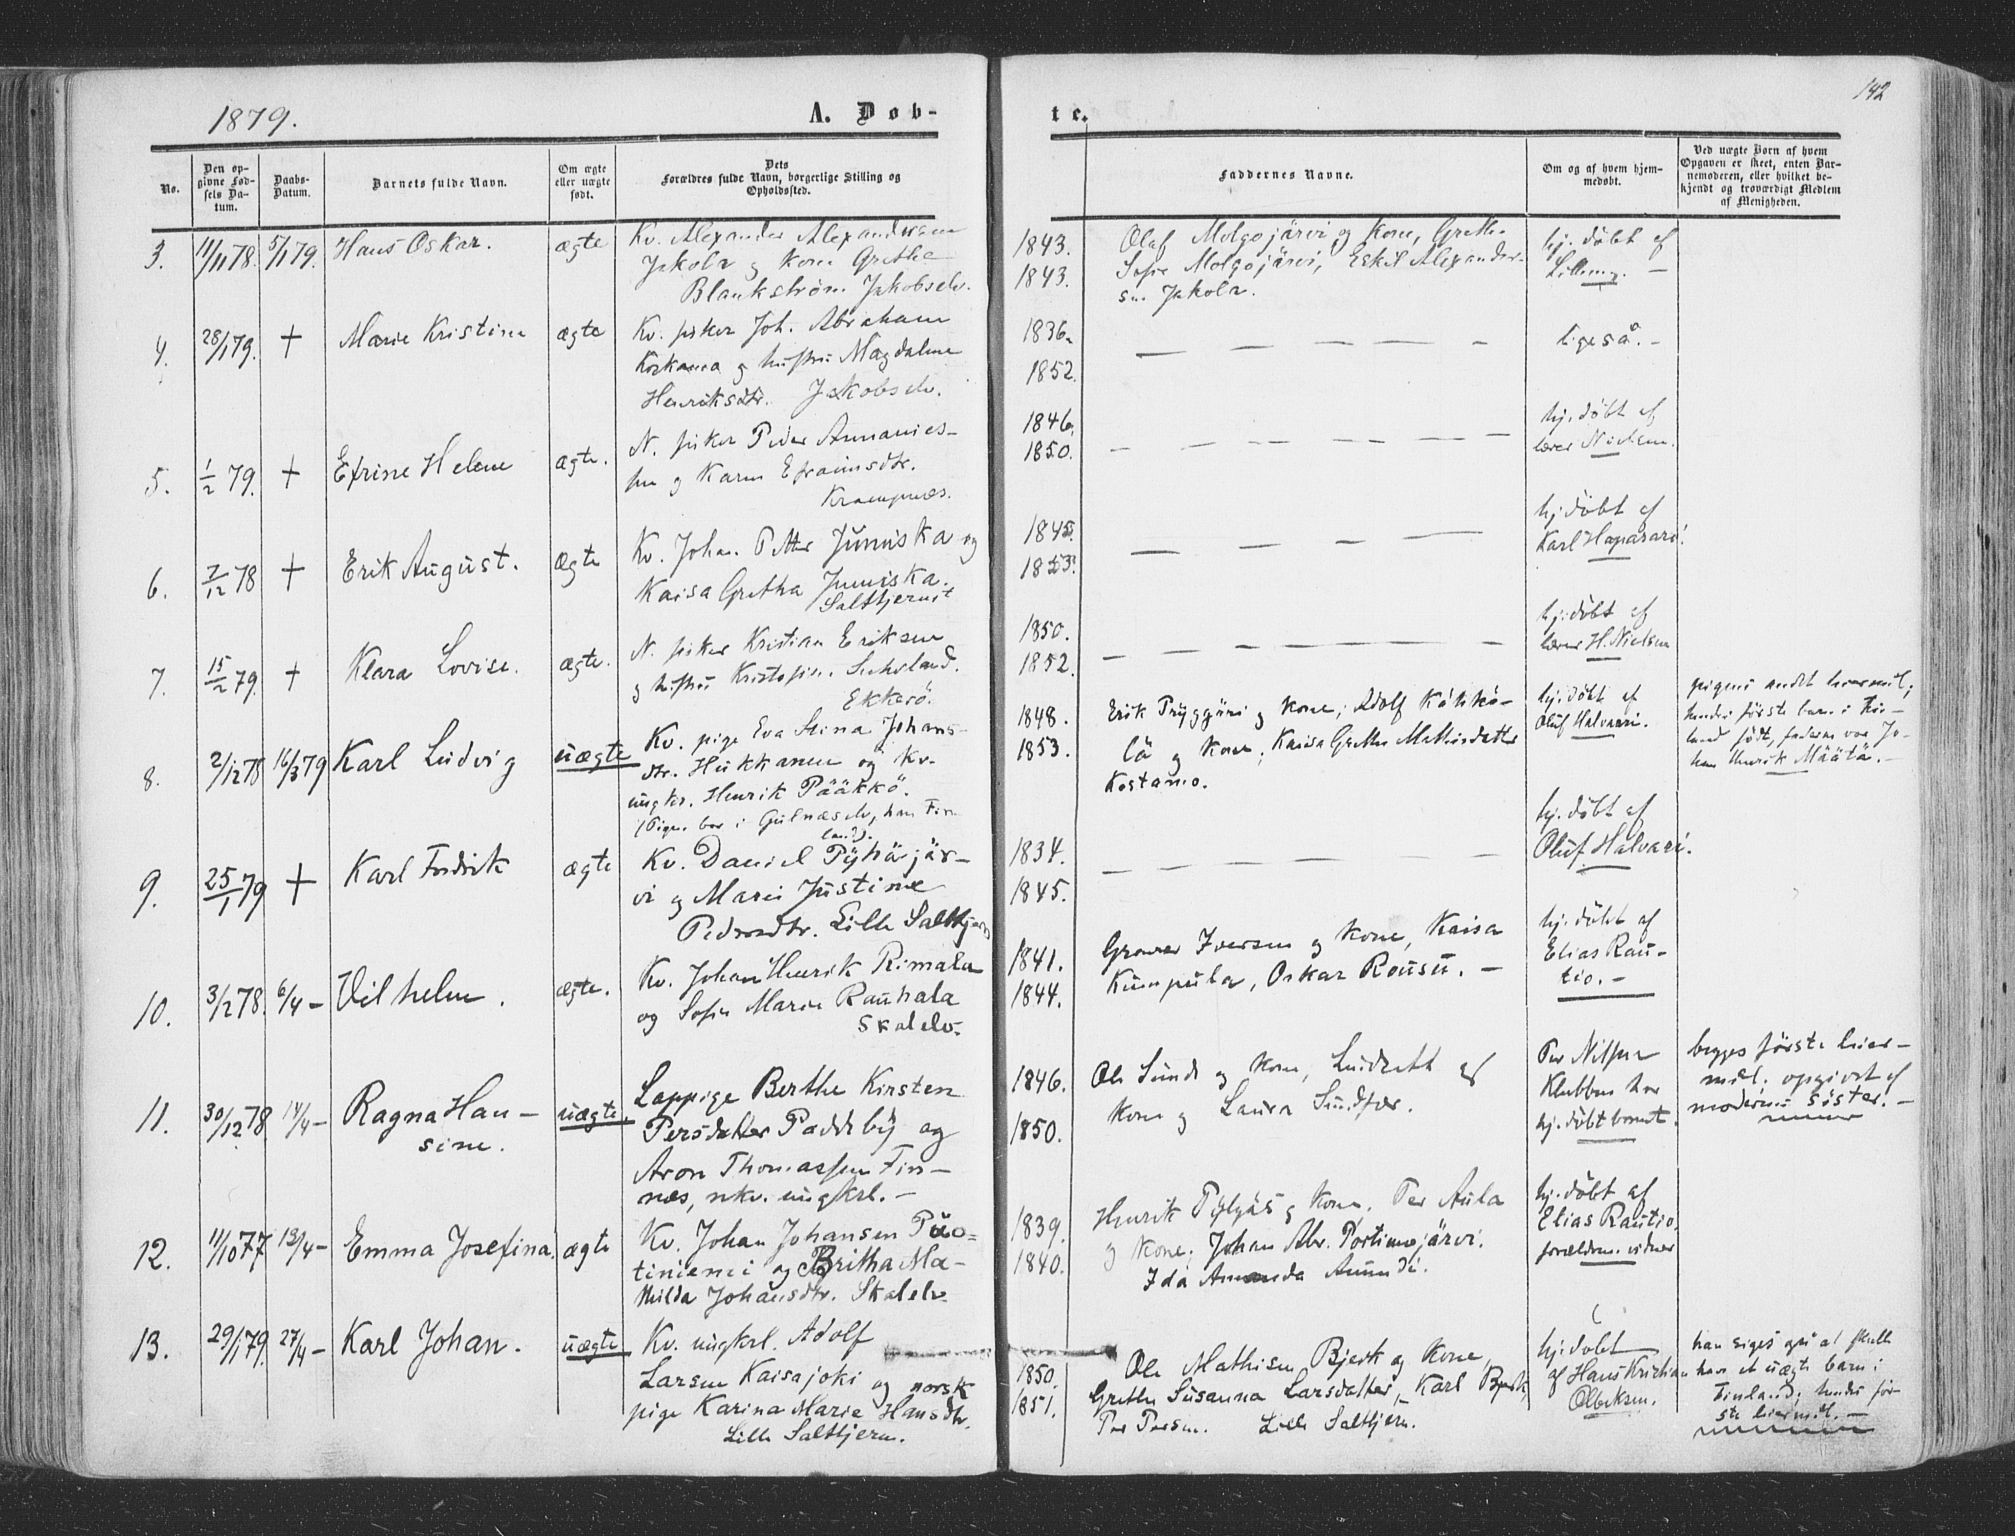 142
1879.
A. Døb-
te.
No.
Den op-
givne Fød-
sels Da-
tum.
Daabs-
Datum.
Barnets fulde Navn.
Om ægte
eller uægte
født.
Dets
Forældres fulde Navn, borgerlige Stilling og
Opholdssted.
Faddernes Navne.
Om og af hvem hjem-
medøbt.
Ved uægte Børn af hvem
Opgaven er skeet, enten Bar-
nemoderen, eller hvilket be-
kjendt og troværdigt Medlem
af Menigheden.
3. 11/11 78. 5/1 79. Hans Oskar. ægte
Kv. Alexander Alexandersen
Jakola og kone Grethe
Blankström Jakobselv.
1843.
1843.
Olaf Molgojärvi og kone, Grethe
Sofie Molgojärvi, Eskil Alexander-
sn. Jakola.
hj. döbt af
4. 28/1 79. + Marie Kristina ægte
Kv. fisker Joh. Abraham
Koskama og hustru Magdalene
Henriksdtr. Jakobselv.
1836.
1852.
— — — — — —
ligeså. -
5. 1/2 79. + Efrine Helene ægte.
N. fisker Peder Annanies-
sen og Karen Efraimsdtr.
Krampenæs.
1846.
1850.
— — — — — —
hj. döbt af
lærer Nielsen.
6. 7/12 78 + Erik August. Ægte
Kv. Johan Petter Juniska og
Kaisa Gretha Juniska.
Saltfjernit
1845.
1853.
— — — — —
hj. döbt af
Karl Haparari.
7. 15/2 79. + Klara Lovise. ægte.
N. fisker Kristian Eriksen
og hustru Kristofine
Ekkerö.
1850.
1852.
— — — — — —
hj. döbt af
lærer H. Nielsen
8. 2/12 78 16/3 79 Karl Ludvig uægte
Kv. pige Eva Stina Johans-
dtr. Hukkanen og Kv.
ungkr. Henrik Pääkkö.
(Pigen bor i Gulnæselv, han Fin-
land).
1848.
1853.
Erik Pryggjäri og kone; Adolf
lä og kone; Kaisa Grethe Mathisdatter
Kostamo.
hj. döbt af
Oluf Halvari.
pigens andet leiermål;
hendes förste barn i Fin-
land födt, faderen var Jo-
han Henrik Määtä. -
9. 25/1 79 + Karl Fredrik ægte
Kv. Daniel Pyhäjär-
vi og Marie Justine
Pedersdtr. Lille Saltfjern
1834.
1845.
— — — — — —
hj. döbt af
Oluf Halvari.
10. 3/12 78. 6/4 - Vilhelm. ægte.
Kv. Johan Henrik Rimala
og Sofie Marie Rauhala
Skalelv.
1841.
1844.
Iversen og kone, Kaisa
Kumpula, Oskar Rousu. -
hj. döbt af
Elias Rau-
tio. -
11. 30/12 78 14/4 - Ragna Han-
sine. uægte
Lappige Berthe Kirsten
Persdatter Paddeby og
Aron Thomassen Fin-
næs, nkv. ungkrl. -
1846.
1850.
Ole Sunde og kone, og
kone og Laura Sundfær.
Per Nilsen
Klubben har
hj. döbt barnet.
begges förste leier-
mål. opgivet af
moderens söster. -
12. 11/10 77 13/4 - Emma Josefina. ægte
Kv. Johan Johansen Puo-
tiniemi og Britha Ma-
thilda Johansdtr. Skalelv.
1839.
1840.
Henrik og kone. Per Aula
og kone; Johan Abr. Portimojärvi.
Ida Amanda
hj. döbt af
Elias Rautio
forældrene vidner
13. 29/1 79. 27/4 - Karl Johan. uægte
Kv. ungkrl. Adolf
Larsen Kaisajoki og norsk
pige Karina Marie Hansdtr.
Lille Saltfjern.
1850.
1851.
Ole Mathisen Bjerk og kone,
Grethe Susanna Larsdatter, Karl Bjerk,
Per Persen. Lille Saltfjern.
hj. döbt
af Hans Kristian
Olbeksen.
han siges også at skulle
have et uægte barn i
Finland; hendes för-
ste leiermål. -